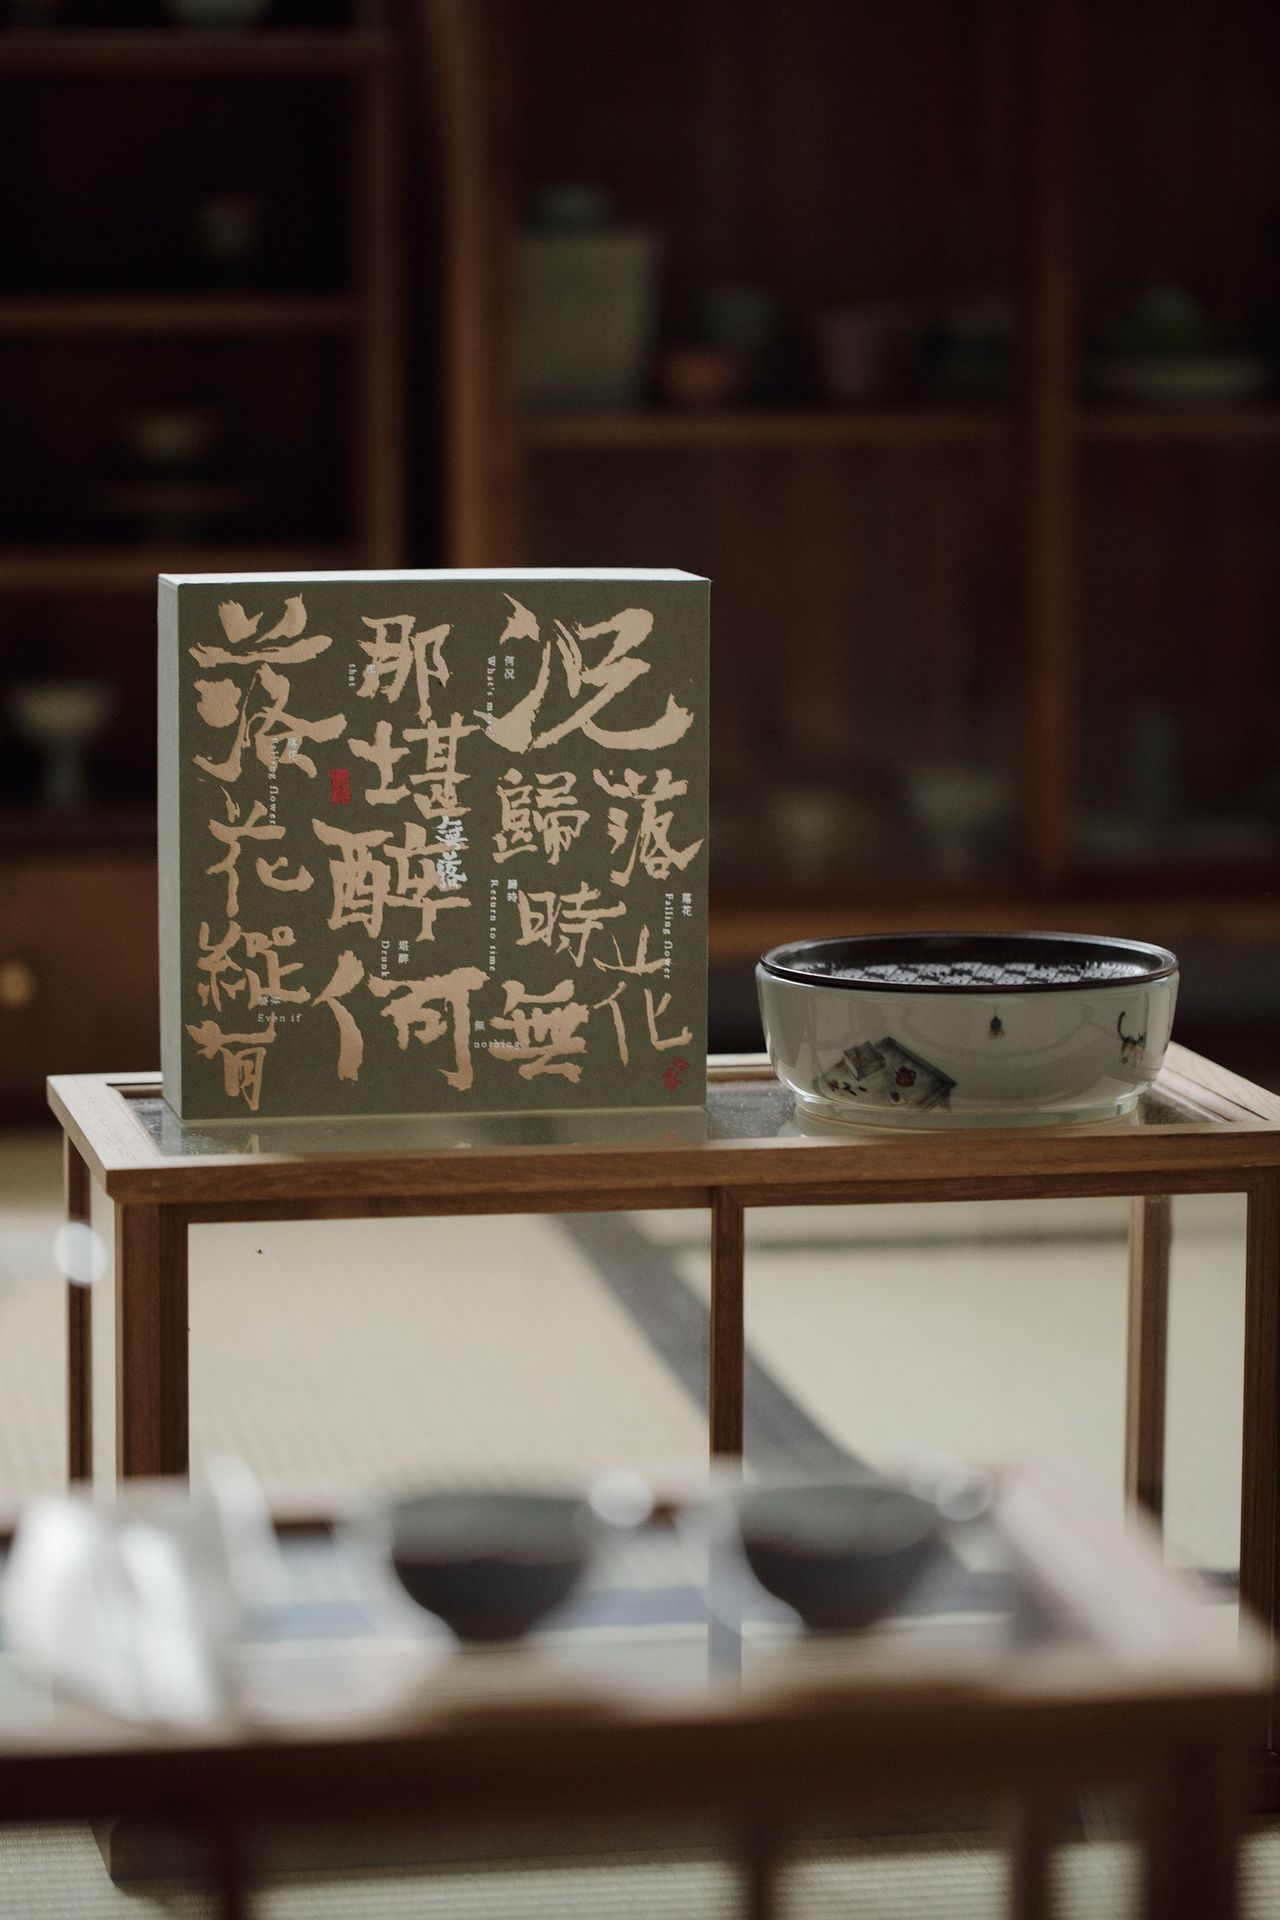 落花縱有
那堪醉何
況歸時無
落花
落花
Falling flower
Even if
that
堪醉
Drunk
何況
What's more
歸時
Return to time
無
nothing
落花
Falling flower